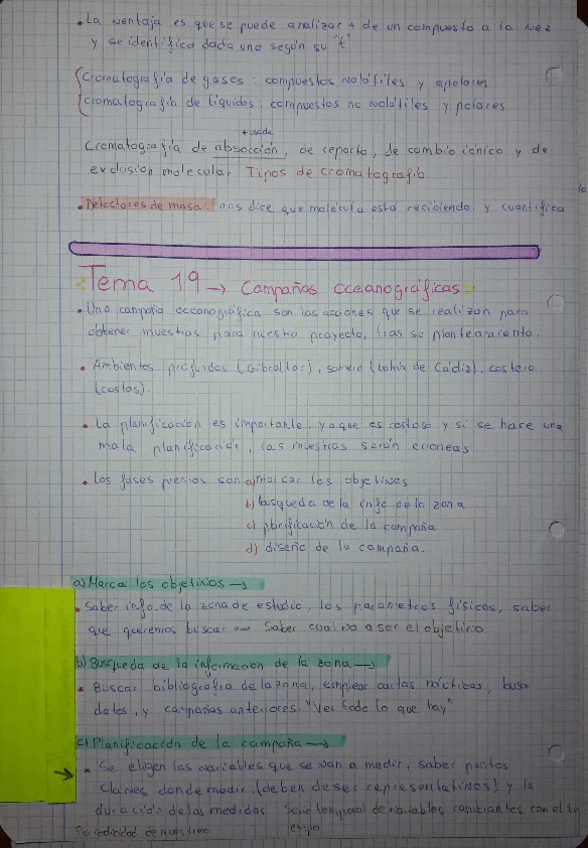 • La ventaja es que se puede analizar + de un compuesto a la vez
y se identifica dada uno según su "t"
Cromatografía de gases: compuestos volátiles y apolares
Cromatografía de líquidos: compuestos no volátiles y polares
+ usada
Cromatografía de absorción, de reparto, de cambio iónico y de
exclusión molecular Tipos de cromatografía.
• Detectores de masa: nos dice que molécula está recibiendo y cuantifica
Tema 19 → Campañas Oceanográficas
• Una campaña oceanográfica son las acciones que se realizan para
obtener muestras para nuestro proyecto, tras su planteamiento.
• Ambientes profundos (Gibraltar), somero (bahía de Cádiz), costero
(costas).
• La planificación es importante, ya que es costoso y si se hace una
mala planificación, las muestras serán erróneas
• Las fases previas son a) marcar los objetivos
b) búsqueda de la info de la zona
c) planificación de la campaña
d) diseño de la campaña.
a) Marcar los objetivos →
• Saber info. de la zona de estudio, los parámetros físicos, saber
que queremos buscar Saber cual va a ser el objetivo
b) Búsqueda de la información de la zona →
• Buscar bibliografía de la zona, emplear cartas náuticas, buscar
datos, y campañas anteriores. "Ver todo lo que hay"
c) Planificación de la campaña →
→ • Se eligen las variables que se van a medir, saber puntos
claves donde medir (deben de ser representativos) y la
duración de las medidas Serie temporal de variables cambiantes con el ti
Periodicidad de muestreo empo